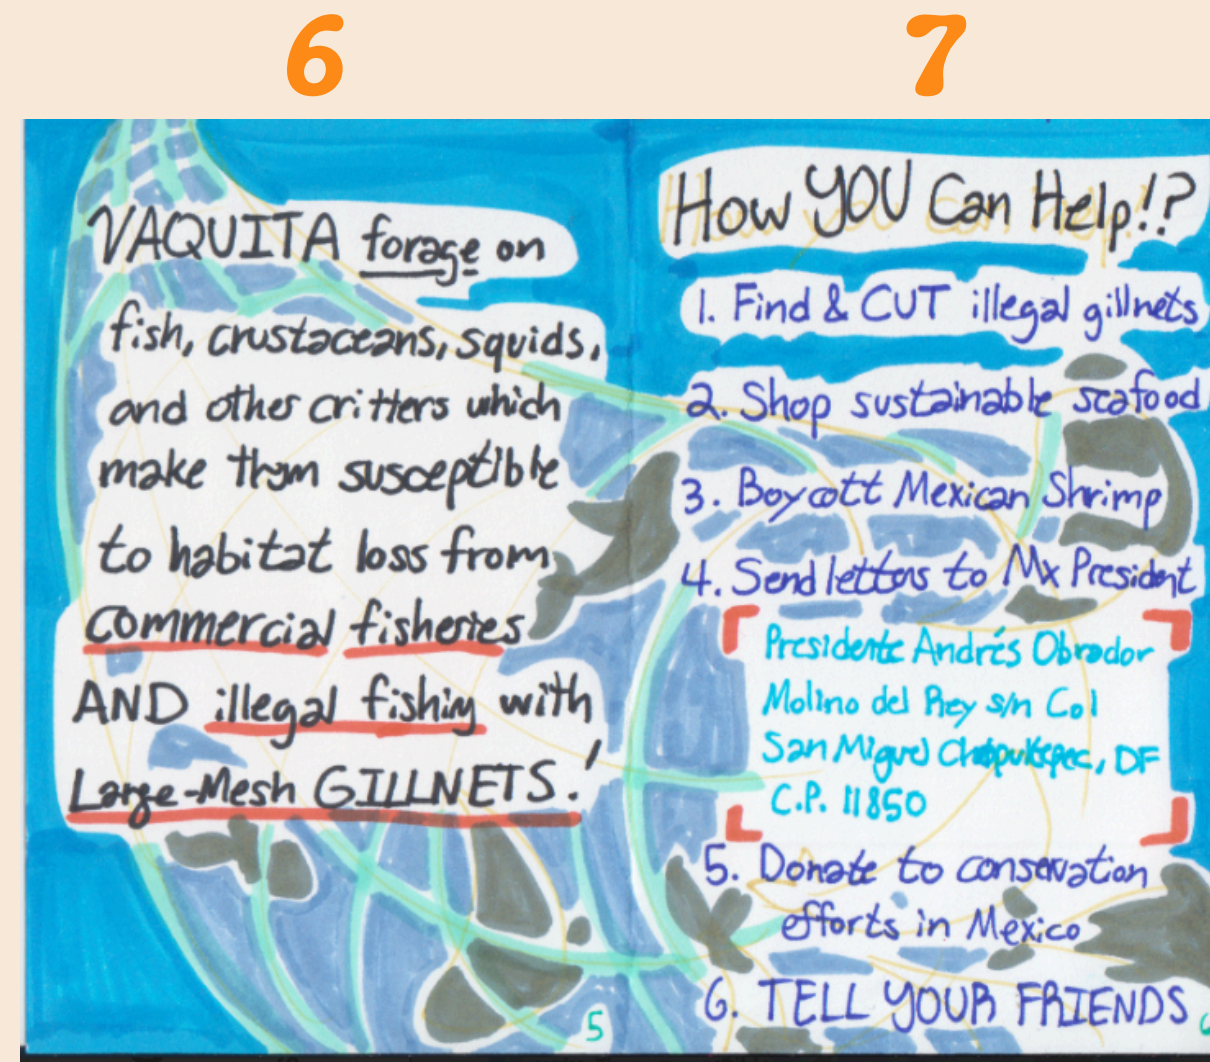 6
7
VAQUITA forage on
fish, crustaceans, squids,
and other critters which
make them susceptible
to habitat loss from
commercial fisheries
AND illegal fishing with
Large-Mesh GILLNETS!
5
How YOU Can Help!?
1. Find & CUT illegal gillnets
2. Shop sustainable seafood
3. Boycott Mexican Shrimp
4. Send letters to Mx President
Presidente Andrés Obrador
Molino del Rey s/n Col
San Miguel Chapultepec, DF
C.P. 11850
5. Donate to conservation
efforts in Mexico
6. TELL YOUR FRIENDS